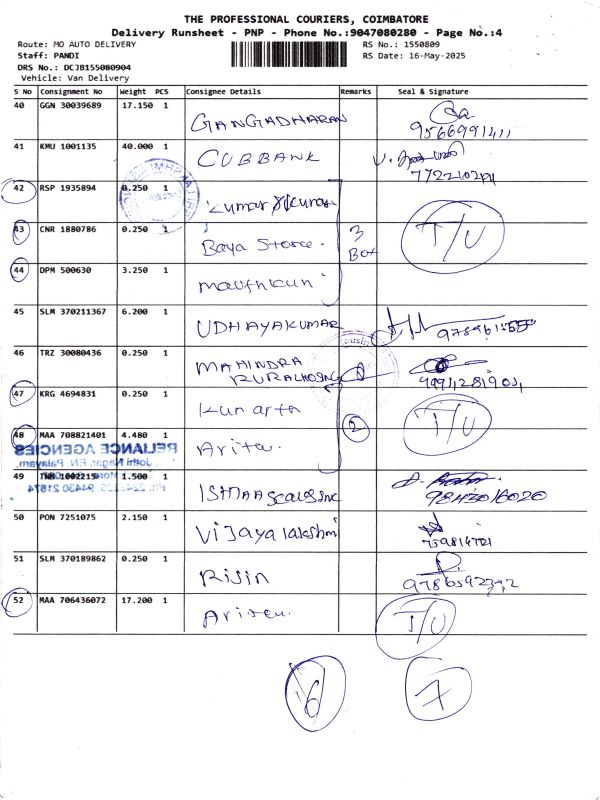 THE PROFESSIONAL COURIERS, COIMBATORE
Delivery Runsheet - PNP - Phone No.:9047080280 - Page No.:4
Route: MO AUTO DELIVERY RS No.: 1550809
Staff: PANDI RS Date: 16-May-2025
DRS No.: DCJB155080904
Vehicle: Van Delivery
S No Consignment No Weight PCS Consignee Details Remarks Seal & Signature
40 GGN 30039689 17.150 1 GANGADHARAN
9566991411
41 KMU 1001135 40.000 1 CUBBANK
42 RSP 1935894 0.250 1 Kumar
43 CNR 1880786 0.250 1 Baya Store. 3 Box I/U
44 DPM 500630 3.250 1
45 SLM 370211367 6.200 1 UDHAYAKUMAR
46 TRZ 30080436 0.250 1 MAHINDRA
47 KRG 4694831 0.250 1 I/U
48 MAA 708821401 4.480 1 2
RELIANCE AGENCIES
Jothi Nagar, P.N. Palayam,
49 TNN 1002215 1.500 1 ISHMAA
9843018020
50 PON 7251075 2.150 1 Vijayalakshmi
51 SLM 370189862 0.250 1 RISIN
52 MAA 706436072 17.200 1 I/U
6 7